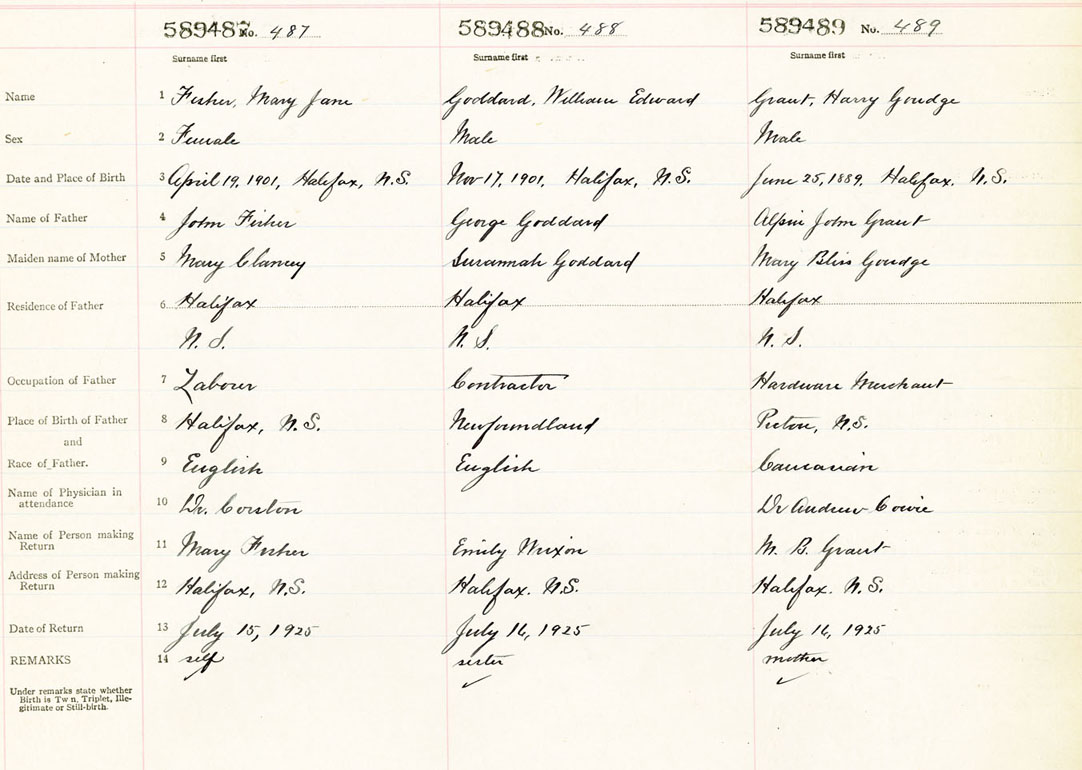 589487 No. 487 589488 No. 488 589489 No. 489
Surname first Surname first Surname first
Name 1 Fisher, Mary Jane Goddard, William Edward Grant, Harry Goudge
Sex 2 Female Male Male
Date and Place of Birth 3 April 19, 1901, Halifax, N.S. Nov 17, 1901, Halifax, N.S. June 25, 1889, Halifax, N.S.
Name of Father 4 John Fisher George Goddard Alpin John Grant
Maiden name of Mother 5 Mary Clancey Susannah Goddard Mary Bliss Goudge
Residence of Father 6 Halifax Halifax Halifax
N.S. N.S. N.S.
Occupation of Father 7 Labour Contractor Hardware Merchant
Place of Birth of Father 8 Halifax, N.S. Newfoundland Pictou, N.S.
and
Race of Father. 9 English English Caucasian
Name of Physician in
attendance 10 Dr. Corston Dr Andrew Cowie
Name of Person making
Return 11 Mary Fisher Emily Wrixon M. B. Grant
Address of Person making
Return 12 Halifax, N.S. Halifax. N.S. Halifax. N.S.
Date of Return 13 July 15, 1925 July 16, 1925 July 16, 1925
REMARKS 14 self sister mother
Under remarks state whether
Birth is Tw n, Triplet, Ille-
gitimate or Still-birth.